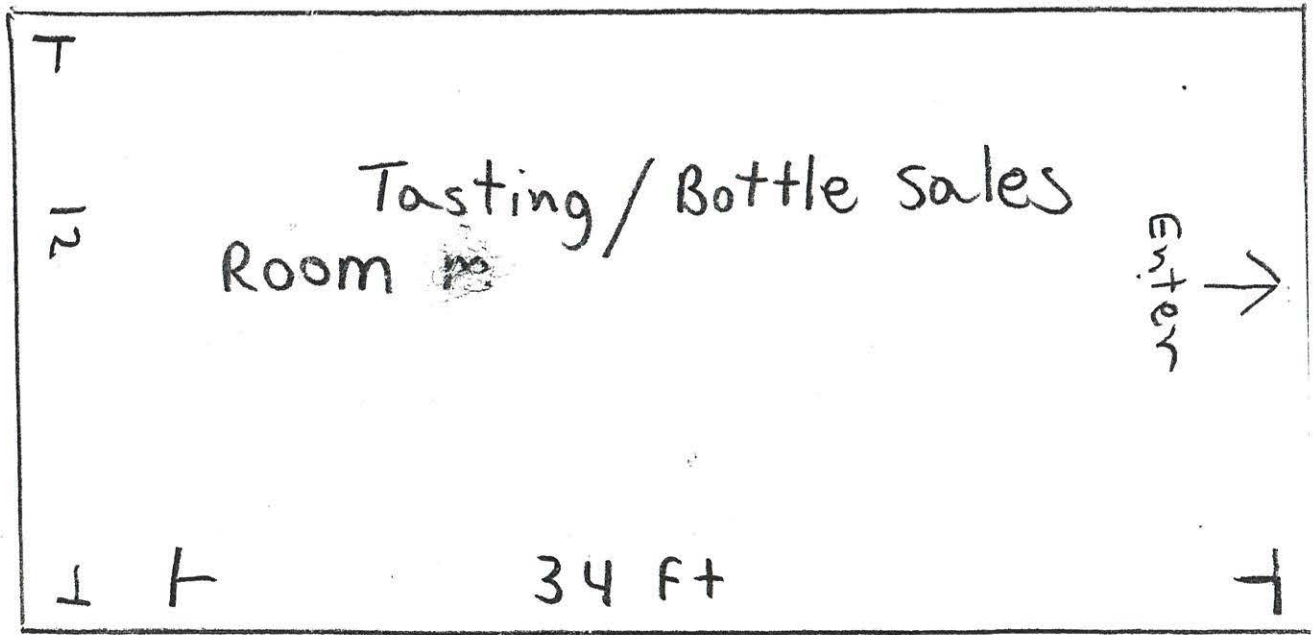 Tasting / Bottle Sales
Room
12
Enter
34 Ft